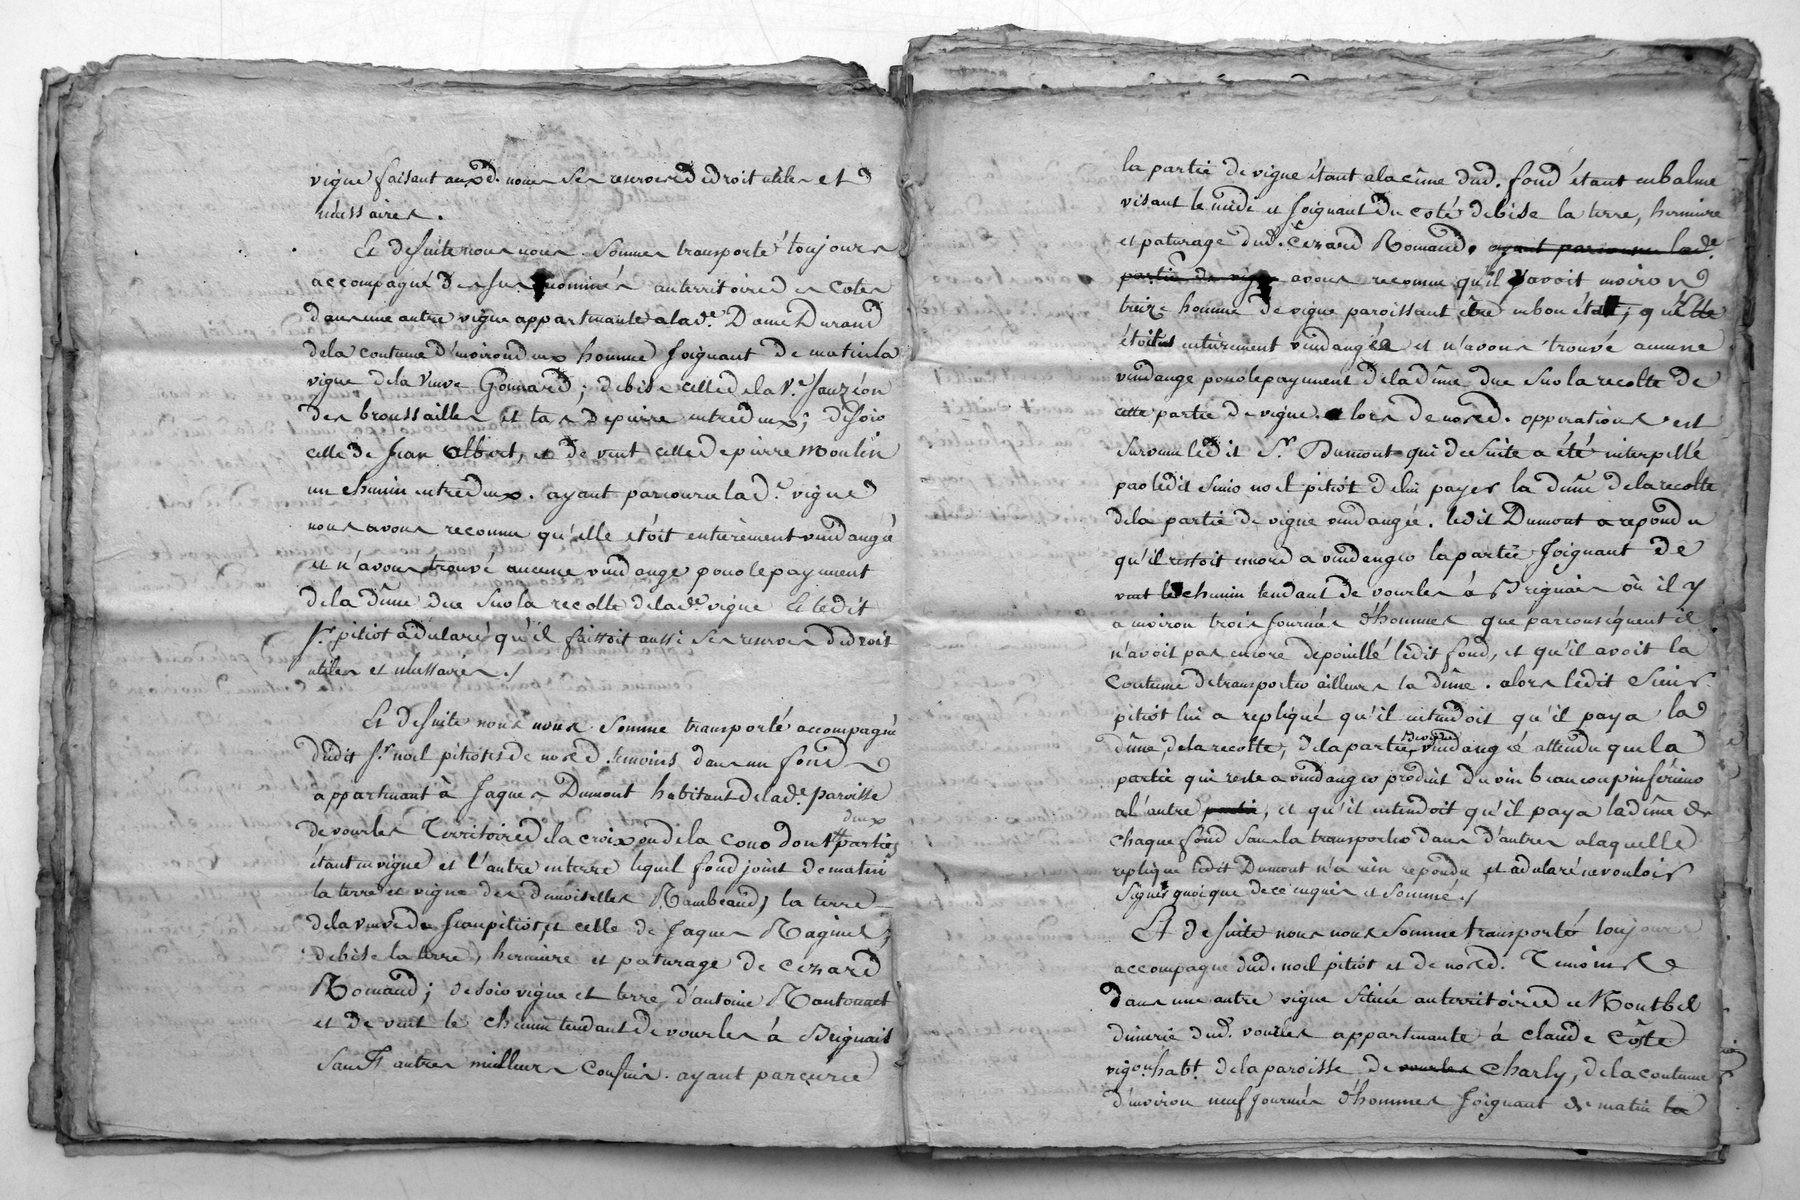 vigne faisant auxd. nous ses reserves de droit utiles et
nécessaires.
Et de suite nous nous sommes transporté toujours
accompagné des sus nommés au territoire des Cotes
dans une autre vigne appartenante a lade. Dame Durand
de la contenue d'environ deux homme joignant de matin la
vigne de la veuve Gonnard; de bise celle de la Ve. Jauzion
des broussailles et tas de pierre entre deux; de soir
celle de Jean Albert, et de vent celle de pierre Moulin
un chemin entre deux. ayant parcouru lad. vigne
nous avons reconnu qu'elle étoit entièrement vendangé
et n'avons trouvé aucune vendange pour le payement
de la dîme due sur la recolte de lade. vigne et ledit
Sr. pitiot a declaré qu'il faisoit aussi ses reserves de droit
utiles et nécessaires /
Et de suite nous nous somme transporté accompagné
dudit Sr. noel pitiot et de nosd. temoins dans un fond
appartenant à Jaques Dumont habitant de lade. paroisse
de vourles Territoire de la croix ou de la Cour dont deux parties
étant en vigne et l'autre en terre lequel fond joint de matin
la terre et vigne des demoiselles Rambeaud, la terre
de la veuve de Jean pitiot, et celle de Jaques Ragined;
de bise la terre, hermiere et paturage de Cezard
Romand; de soir vigne et terre d'antoine
et de vent le chemin tendant de vourles à Brignais
sauf autres meilleurs Confins. ayant parcurue
la partie de vigne étant a la cîme dud. fond étant en balme
visant le midi et joignant du coté de bise la terre, hermiere
et paturage dud. Cezard Romand. ayant parcouru lade.
partie de vigne avons reconnu qu'il y avoit environ
treize homme de vigne paroissant être en bon état, qu'elle
étoit entièrement vendangée et n'avons trouvé aucune
vendange pour le payement de la dîme due sur la recolte de
cette partie de vigne. a lors de nosd. opperations est
survenu ledit Sr. Dumont qui de suite a été interpellé
par ledit sieur noel pitiot de lui payer la dîme de la recolte
de la partie de vigne vendangée. ledit Dumont a repondu
qu'il restoit encore a vendenger la partie joignant de
vent le chemin tendant de vourles à Brignais où il y
a environ trois journées d'hommes que par conséquent il
n'avoit pas encore depouillé ledit fond, et qu'il avoit la
Coutume de transporter ailleurs la dîme. alors ledit Sieur
pitiot lui a repliqué qu'il entendois qu'il paya la
dîme de la recolte, de la partie vendangée attendu que la
partie qui reste a vendanger produit du vin beaucoup inférieur
a l'autre partie, et qu'il entendoit qu'il paya la dîme de
chaque fond sans la transporter dans d'autres a laquelle
replique ledit Dumont n'a rien repondu et a declaré ne vouloir
signer quoique de ce enquis et sommé /
Et de suite nous nous somme transporté toujours
accompagne dud. noel pitiot et de nosd. Temoins
dans une autre vigne située au territoire de Montbel
dimerie dud. vourles appartenante à Claude Coste
vigon. habt. de la paroisse de vourles Charly, de la contenue
d'environ neuf journées d'hommes joignant de matin la